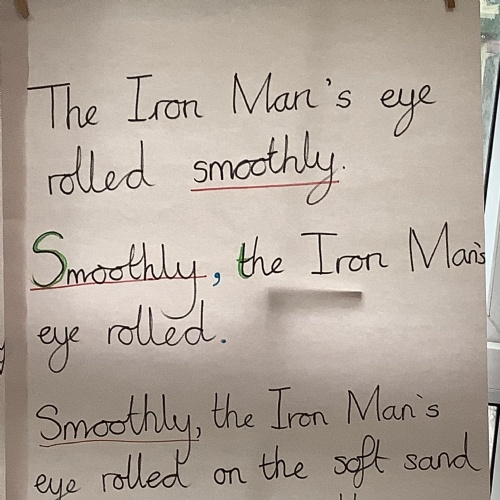 The Iron Man's eye
rolled smoothly.
Smoothly, the Iron Man's
eye rolled.
Smoothly, the Iron Man's
eye rolled on the soft sand